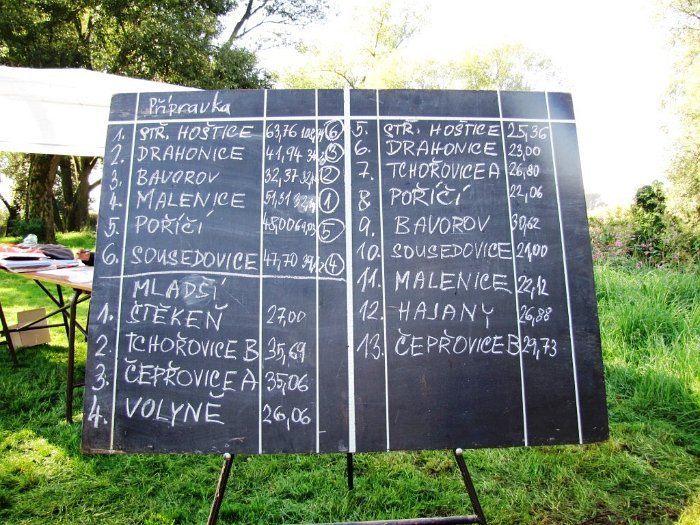 Přípravka
1. STŘ. HOŠTICE 63,76 6
2. DRAHONICE 41,94 3
3. BAVOROV 32,37 2
4. MALENICE 51,51 1
5. POŘÍČÍ 5
6. SOUSEDOVICE 47,70 4
MLADŠÍ
1. ŠTĚKEŇ 27,00
2. TCHOŘOVICE B 35,69
3. ČEPŘOVICE A 35,06
4. VOLYNĚ 26,06
5. STŘ. HOŠTICE 25,36
6. DRAHONICE 23,00
7. TCHOŘOVICE A 26,80
8 POŘÍČÍ 22,06
9. BAVOROV 30,62
10. SOUSEDOVICE 21,00
11. MALENICE 22,12
12. HAJANY 26,88
13. ČEPŘOVICE B 29,73